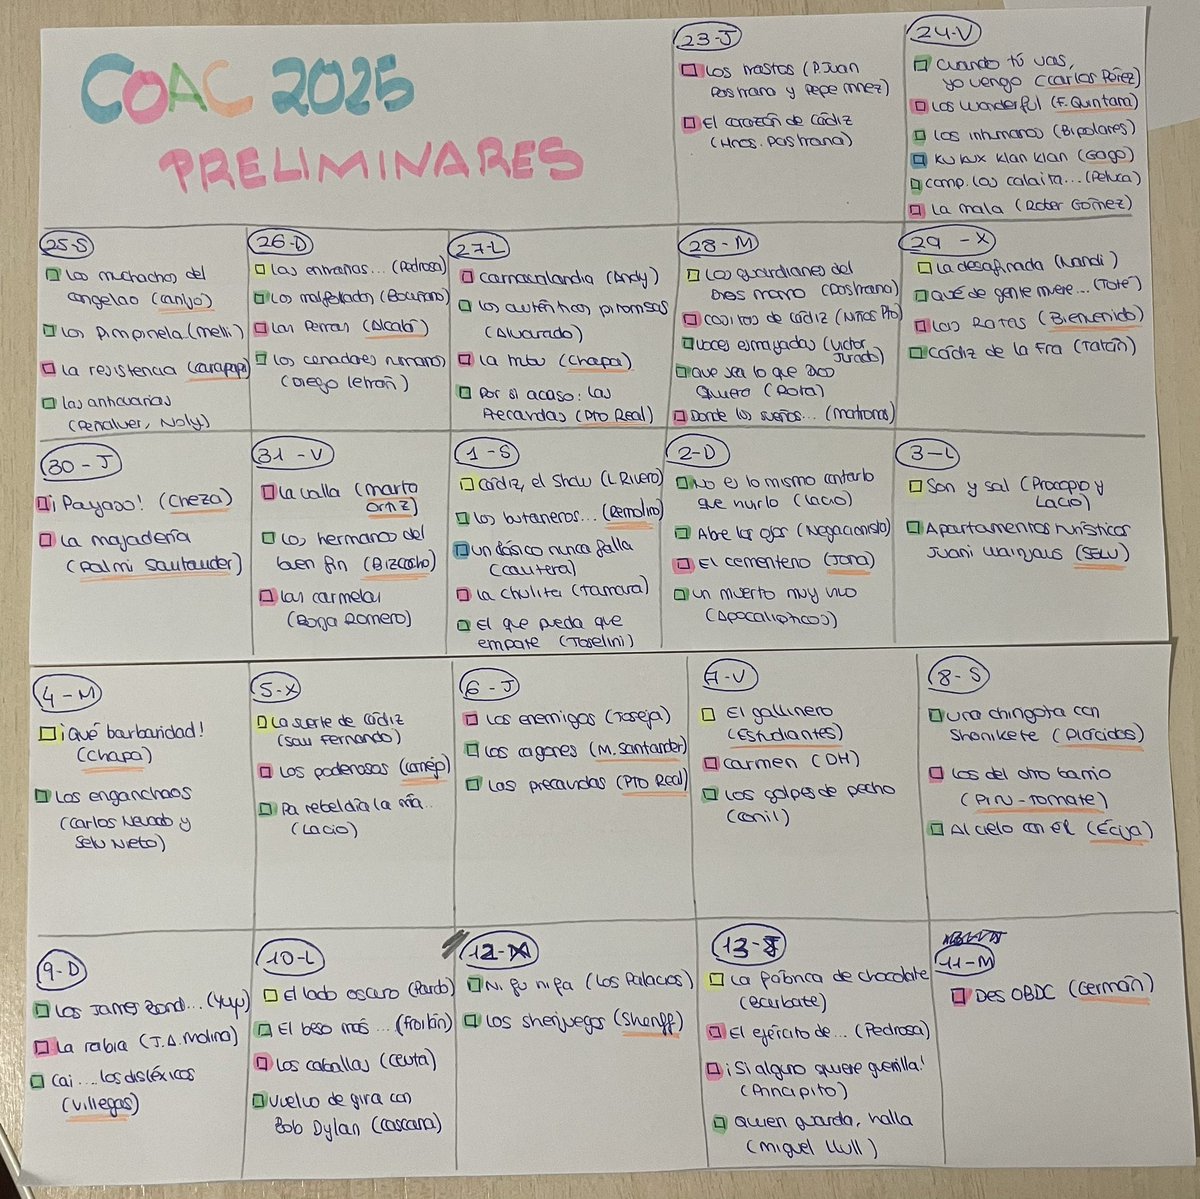 COAC 2025
PRELIMINARES
23-J
Los trastos (P. Juan
Pastrana y Pepe Mnez)
El corazón de Cádiz
(Hnos. Pastrana)
24-V
Cuando tú vas,
yo vengo (Carlos Pérez)
Los Wonderful (F. Quintana)
Los inhumanos (Bipolares)
Ku kux klan klan (Gago)
Comp. Los calaita... (Peluca)
La mala (Roter Gómez)
25-S
Los muchachos del
congelao (Canijo)
Los Pimpinela (Melli)
La resistencia (Carapapa)
Las anticuarias
(Peñalver, Noly)
26-D
Las entrañas... (Pedrosa)
Los malfollados (Bocuñano)
Las Perras (Alcalá)
Los cenadores rumanos
(Diego Letrán)
27-L
Carnavalandia (Andy)
Los auténticos piromusas
(Alvarado)
La tribu (Chapa)
Por si acaso: Las
Precavidas (Pto Real)
28-M
Los guardianes del
tres mano (Pastrana)
Cositas de Cádiz (Niños Pto)
Voces esmayadas (Victor
Jurado)
Que sea lo que Dios
Quiera (Rota)
Donde los sueños... (matronas)
29-X
La desafinada (Nandi)
Qué de gente muere... (Toté)
Las Ratas (Bienvenido)
Cádiz de la Fra (Tatán)
30-J
¡Payaso! (Cheza)
La majadería
(Palmi Santander)
31-V
La valla (Marta
Ortiz)
Los hermanos del
buen fin (Bizcocho)
Las carmelas
(Borja Romero)
1-S
Cádiz, el show (L Rivero)
Los butaneros... (Remolino)
Un clásico nunca falla
(Cautera)
La chulita (Tamara)
El que pueda que
empate (Toselini)
2-D
No es lo mismo contarlo
que vivirlo (Lacio)
Abre los ojos (Negacionista)
El cementerio (Jona)
Un muerto muy vivo
(Apocalípticos)
3-L
Son y sal (Procopio y
Lacio)
Apartamentos turísticos
Juani Wainjaus (Selu)
4-M
¡Qué barbaridad!
(Chapa)
Los enganchaos
(Carlos Nevado y
Selu Nieto)
5-X
La suerte de Cádiz
(San Fernando)
Los poderosos (Cornejo)
Pa rebeldía la mía..
(Lacio)
6-J
Los enemigos (Joseja)
Los cagones (M. Santander)
Las precavidas (Pto Real)
7-V
El gallinero
(Estudiantes)
Carmen (DH)
Los golpes de pecho
(Conil)
8-S
Una chirigota con
Shonikete (Plácidos)
Los del otro barrio
(Piru-Tomate)
Al cielo con él (Écija)
9-D
Los James Bond... (Yuyu)
La rabia (J.A. Molina)
Cai .... los disléxicos
(Villegas)
10-L
El lado oscuro (Pardo)
El beso más ... (Froilán)
Los caballas (Ceuta)
Vuelvo de gira con
Bob Dylan (Cascana)
12-X
Ni fu ni fa (Los Palacios)
Los sherijuegos (Sheriff)
13-J
La fábrica de chocolate
(Barbate)
El ejército de... (Pedrosa)
¡Si alguno quiere guerrilla!
(Principito)
Quien guarda, halla
(Miguel Llull)
11-M
Des OBDC (Germán)